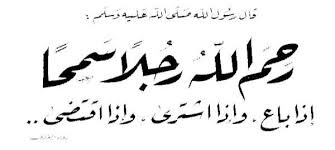 قال رسول الله صلى الله عليه وسلم :
رَحِمَ اللهُ رَجُلاً سَمْحًا
إذا باع ، وإذا اشترى ، وإذا اقتضى ..